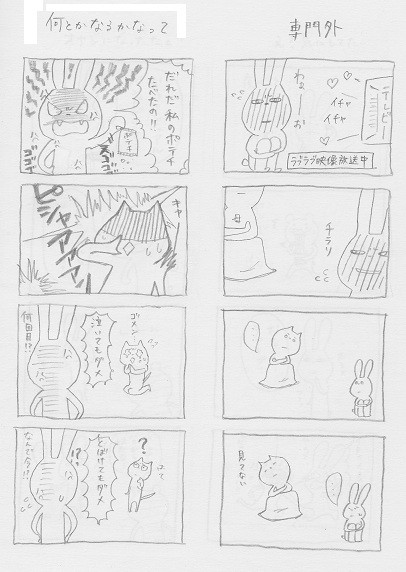 専門外
テレビー
イチャ
イチャ
わぉーお
ラブラブ映像放送中
チラリ
見てない
何とかなるかなって
だれだ私のポテチ
たべたの!!
ポテチ
ゴゴゴ
キャ
ピシャアアア
ゴメン
泣いてもダメ
何回目!?
?
はて
とぼけてもダメ
!?
なんで今!?